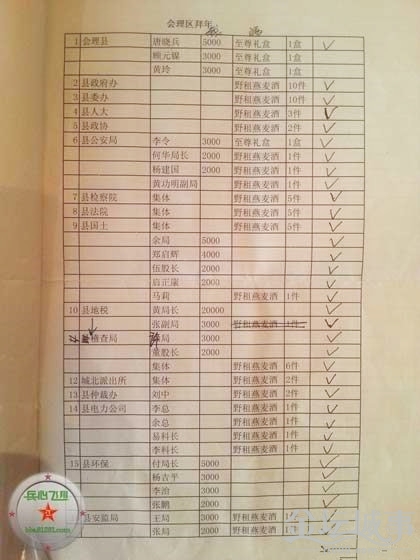 会理区拜年
酒
1 会理县 唐晓兵 5000 至尊礼盒 1盒
顾元镍 3000 至尊礼盒 1盒
黄玲 3000 至尊礼盒 1盒
2 县政府办 野租燕麦酒 10件
3 县委办 野租燕麦酒 10件
4 县人大 野租燕麦酒 3件
5 县政协 野租燕麦酒 2件
6 县公安局 李令 3000 至尊礼盒 1盒
何华局长 2000 野租燕麦酒 1件
杨建国 2000 野租燕麦酒 1件
黄功明副局 野租燕麦酒 1件
7 县检察院 集体 野租燕麦酒 5件
8 县法院 集体 野租燕麦酒 5件
9 县国土 集体 野租燕麦酒 5件
余局 5000
郑启辉 4000
伍股长 2000
启正康 2000
马莉 野租燕麦酒 1件
10 县地税 黄局长 20000
张副局 3000 野租燕麦酒 1件
稽查局 许局 3000
董股长 2000
集体 野租燕麦酒 6件
12 城北派出所 集体 野租燕麦酒 2件
13 县仲裁办 刘中 野租燕麦酒 2件
14 县电力公司 李总 野租燕麦酒 1件
余总 野租燕麦酒 1件
易科长 野租燕麦酒 1件
李科长 野租燕麦酒 1件
15 县环保 付局长 5000
杨吉平 3000
李治 3000
张鹏 2000
县安监局 王局 3000 野租燕麦酒 1件
张局 2000 野租燕麦酒 1件
民心飞扬